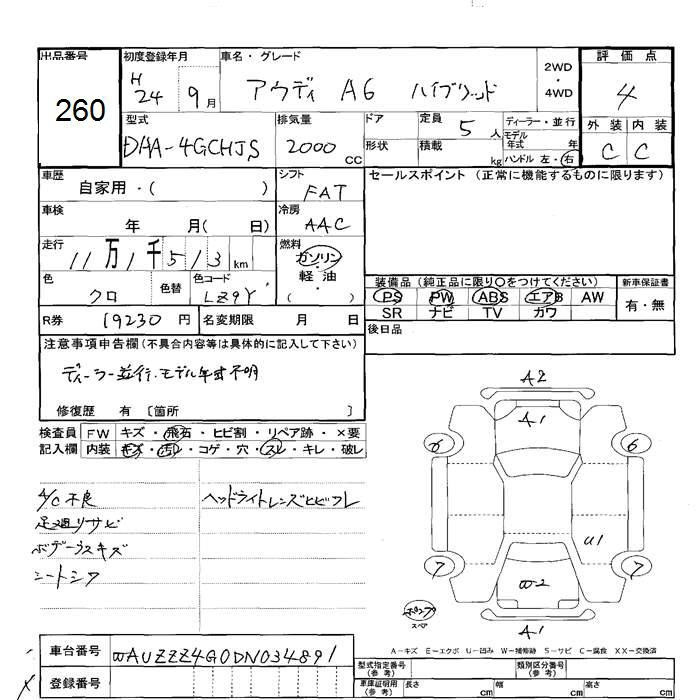 出品番号
260
初度登録年月
H 24 9月
車名・グレード
アウディ A6 ハイブリッド
2WD
・
4WD
評価点
4
外装 内装
C C
型式
DAA-4GCHJS
排気量
2000 CC
ドア
形状
定員 5 人
積載 kg
ディーラー・並行
モデル年式 年
ハンドル 左・右
車歴
自家用・( )
シフト
FAT
セールスポイント (正常に機能するものに限ります)
車検
年 月( 日)
冷房
AAC
走行
11万1千513km
燃料
ガソリン
・
軽油
( )
色
クロ
色替
色コード
LZ9Y
装備品(純正品に限り○をつけてください)
PS PW ABS エアB AW
SR ナビ TV カワ
新車保証書
有・無
R券 19230円
名変期限 月 日
後日品
注意事項申告欄(不具合内容等は具体的に記入して下さい)
ディーラー並行・モデル年式不明
修復歴 有 [箇所 ]
検査員 FW キズ・飛石・ヒビ割・リペア跡・×要
記入欄 内装 キズ・汚レ・コゲ・穴・スレ・キレ・破レ
A/C不良
足廻りサビ
ボデーウスキズ
シートシワ
ヘッドライトレンズヒビワレ
A2
A1
6 6
U1
7 7
W-2
スペア
A1
A-キズ E-エクボ U-凹み W-補修跡 S-サビ C-腐食 XX-交換済
車台番号 WAUZZZ4G0DN034891
登録番号
型式指定番号
(参考)
類別区分番号
(参考)
車庫証明用
(参考)
長さ cm 幅 cm 高さ cm